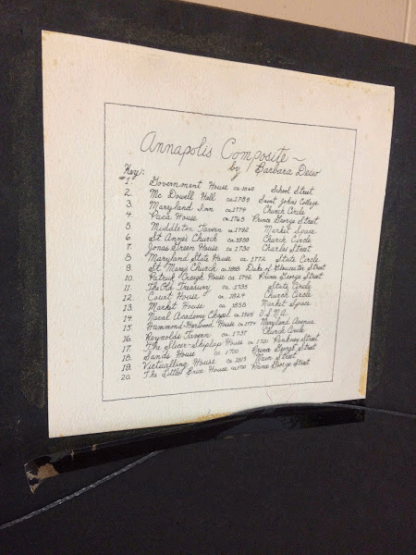 Annapolis Composite ~
by Barbara Dew
Key:
1. Government House ca. 1868 School Street
2. Mc Dowell Hall ca. 1789 Saint Johns College
3. Maryland Inn ca. 1774 Church Circle
4. Paca House ca. 1763 Prince George Street
5. Middleton Tavern ca. 1750 Market Space
6. St. Anne's Church ca. 1858 Church Circle
7. Jonas Green House ca. 1730 Charles Street
8. Maryland State House ca. 1772 State Circle
9. St. Marys Church Duke of Gloucester Street
10. Patrick Creagh House Prince George Street
11. The Old Treasury ca. 1735 State Circle
12. Court House ca. 1824 Church Circle
13. Market House ca. 1858 Market Space
14. Naval Academy Chapel U.S.N.A.
15. Hammond-Harwood House ca. 1774 Maryland Avenue
16. Reynolds Tavern ca. 1737 Church Circle
17. The House ca. Street
18. Sands House ca. 1700 Prince George Street
19. Victualling House ca. Main Street
20. The Little House Prince George Street